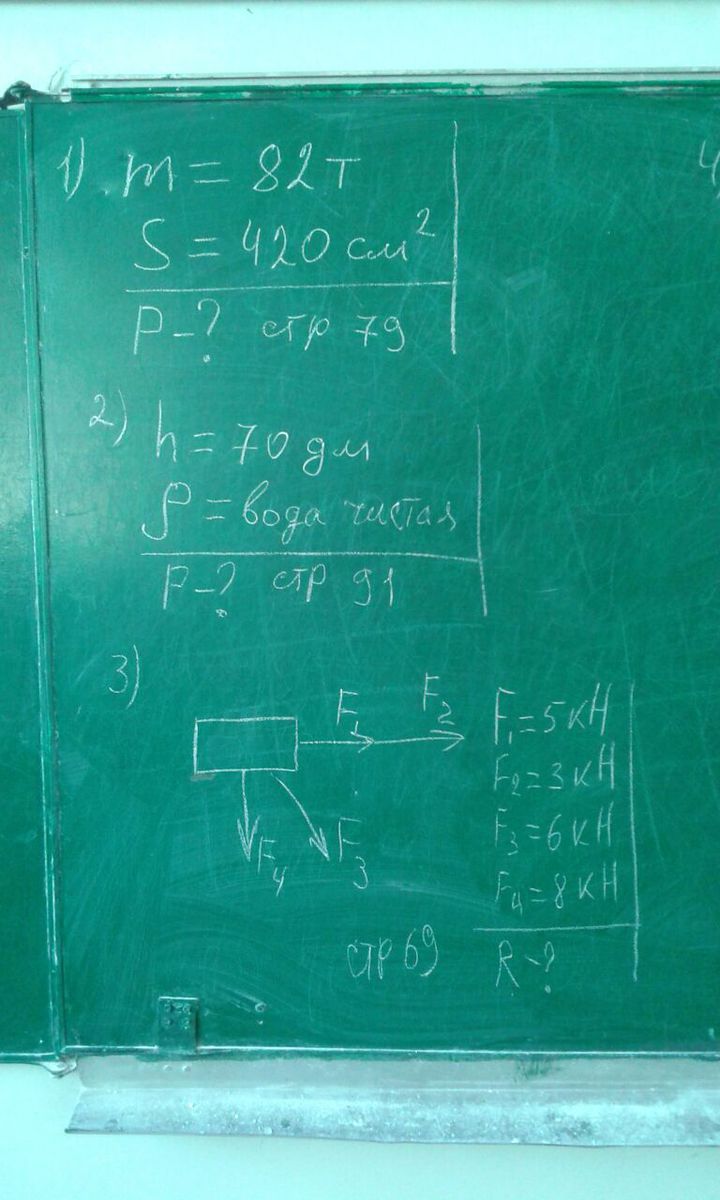 1) m = 82т
S = 420 см²
P - ? стр 79
2) h = 70 дм
ρ = вода чистая
P - ? стр 91
3)
F₁ F₂
F₄ F₃
F₁ = 5 кН
F₂ = 3 кН
F₃ = 6 кН
F₄ = 8 кН
стр 69 R - ?